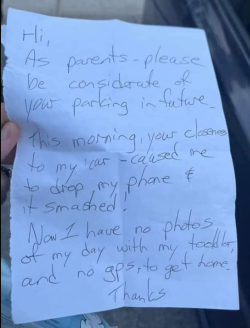 Hi,
As parents - please
be considerate of
your parking in future.
This morning, your closeness
to my car - caused me
to drop my phone &
it smashed!
Now I have no photos
of my day with my toddler,
and no gps, to get home.
Thanks